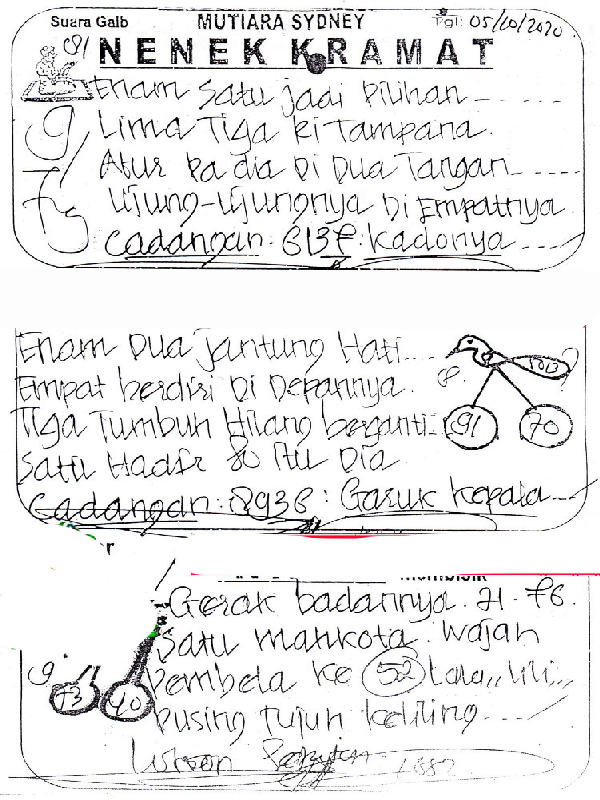 Suara Galb MUTIARA SYDNEY Tgl: 05/10/2020
91 NENEK KRAMAT
Enam Satu jadi Pilihan
9 Lima Tiga ki Tampana.
Atur Pa dia Di Dua Tangan
Ujung-Ujungnya Di Empatnya
Cadangan: 613f: Kadonya
Enam Dua jantung Hati...
Empat berdiri Di Depannya.
Tiga Tumbuh Hilang berganti
91 70
Satu Hadir Itu Dia
Cadangan: 8938: Garuk Kepala
Gerak badannya. 21. f6.
Satu mahkota. Wajah
9 73 40
Pembela Ke 52 Lala,, lili,,
Pusing Tujuh keliling